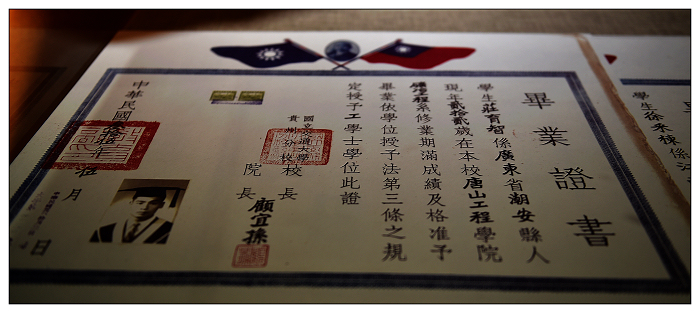 畢業證書
學生莊育智係廣東省潮安縣人
現年貳拾貳歲在本校唐山工程學院
工程系修業期滿成績及格准予
畢業依學位授予法第三條之規
定授予工學士學位此證
國立交通大學
貴州分校
校長
院長
顧宜孫
中華民國
年
月
日
學生徐承